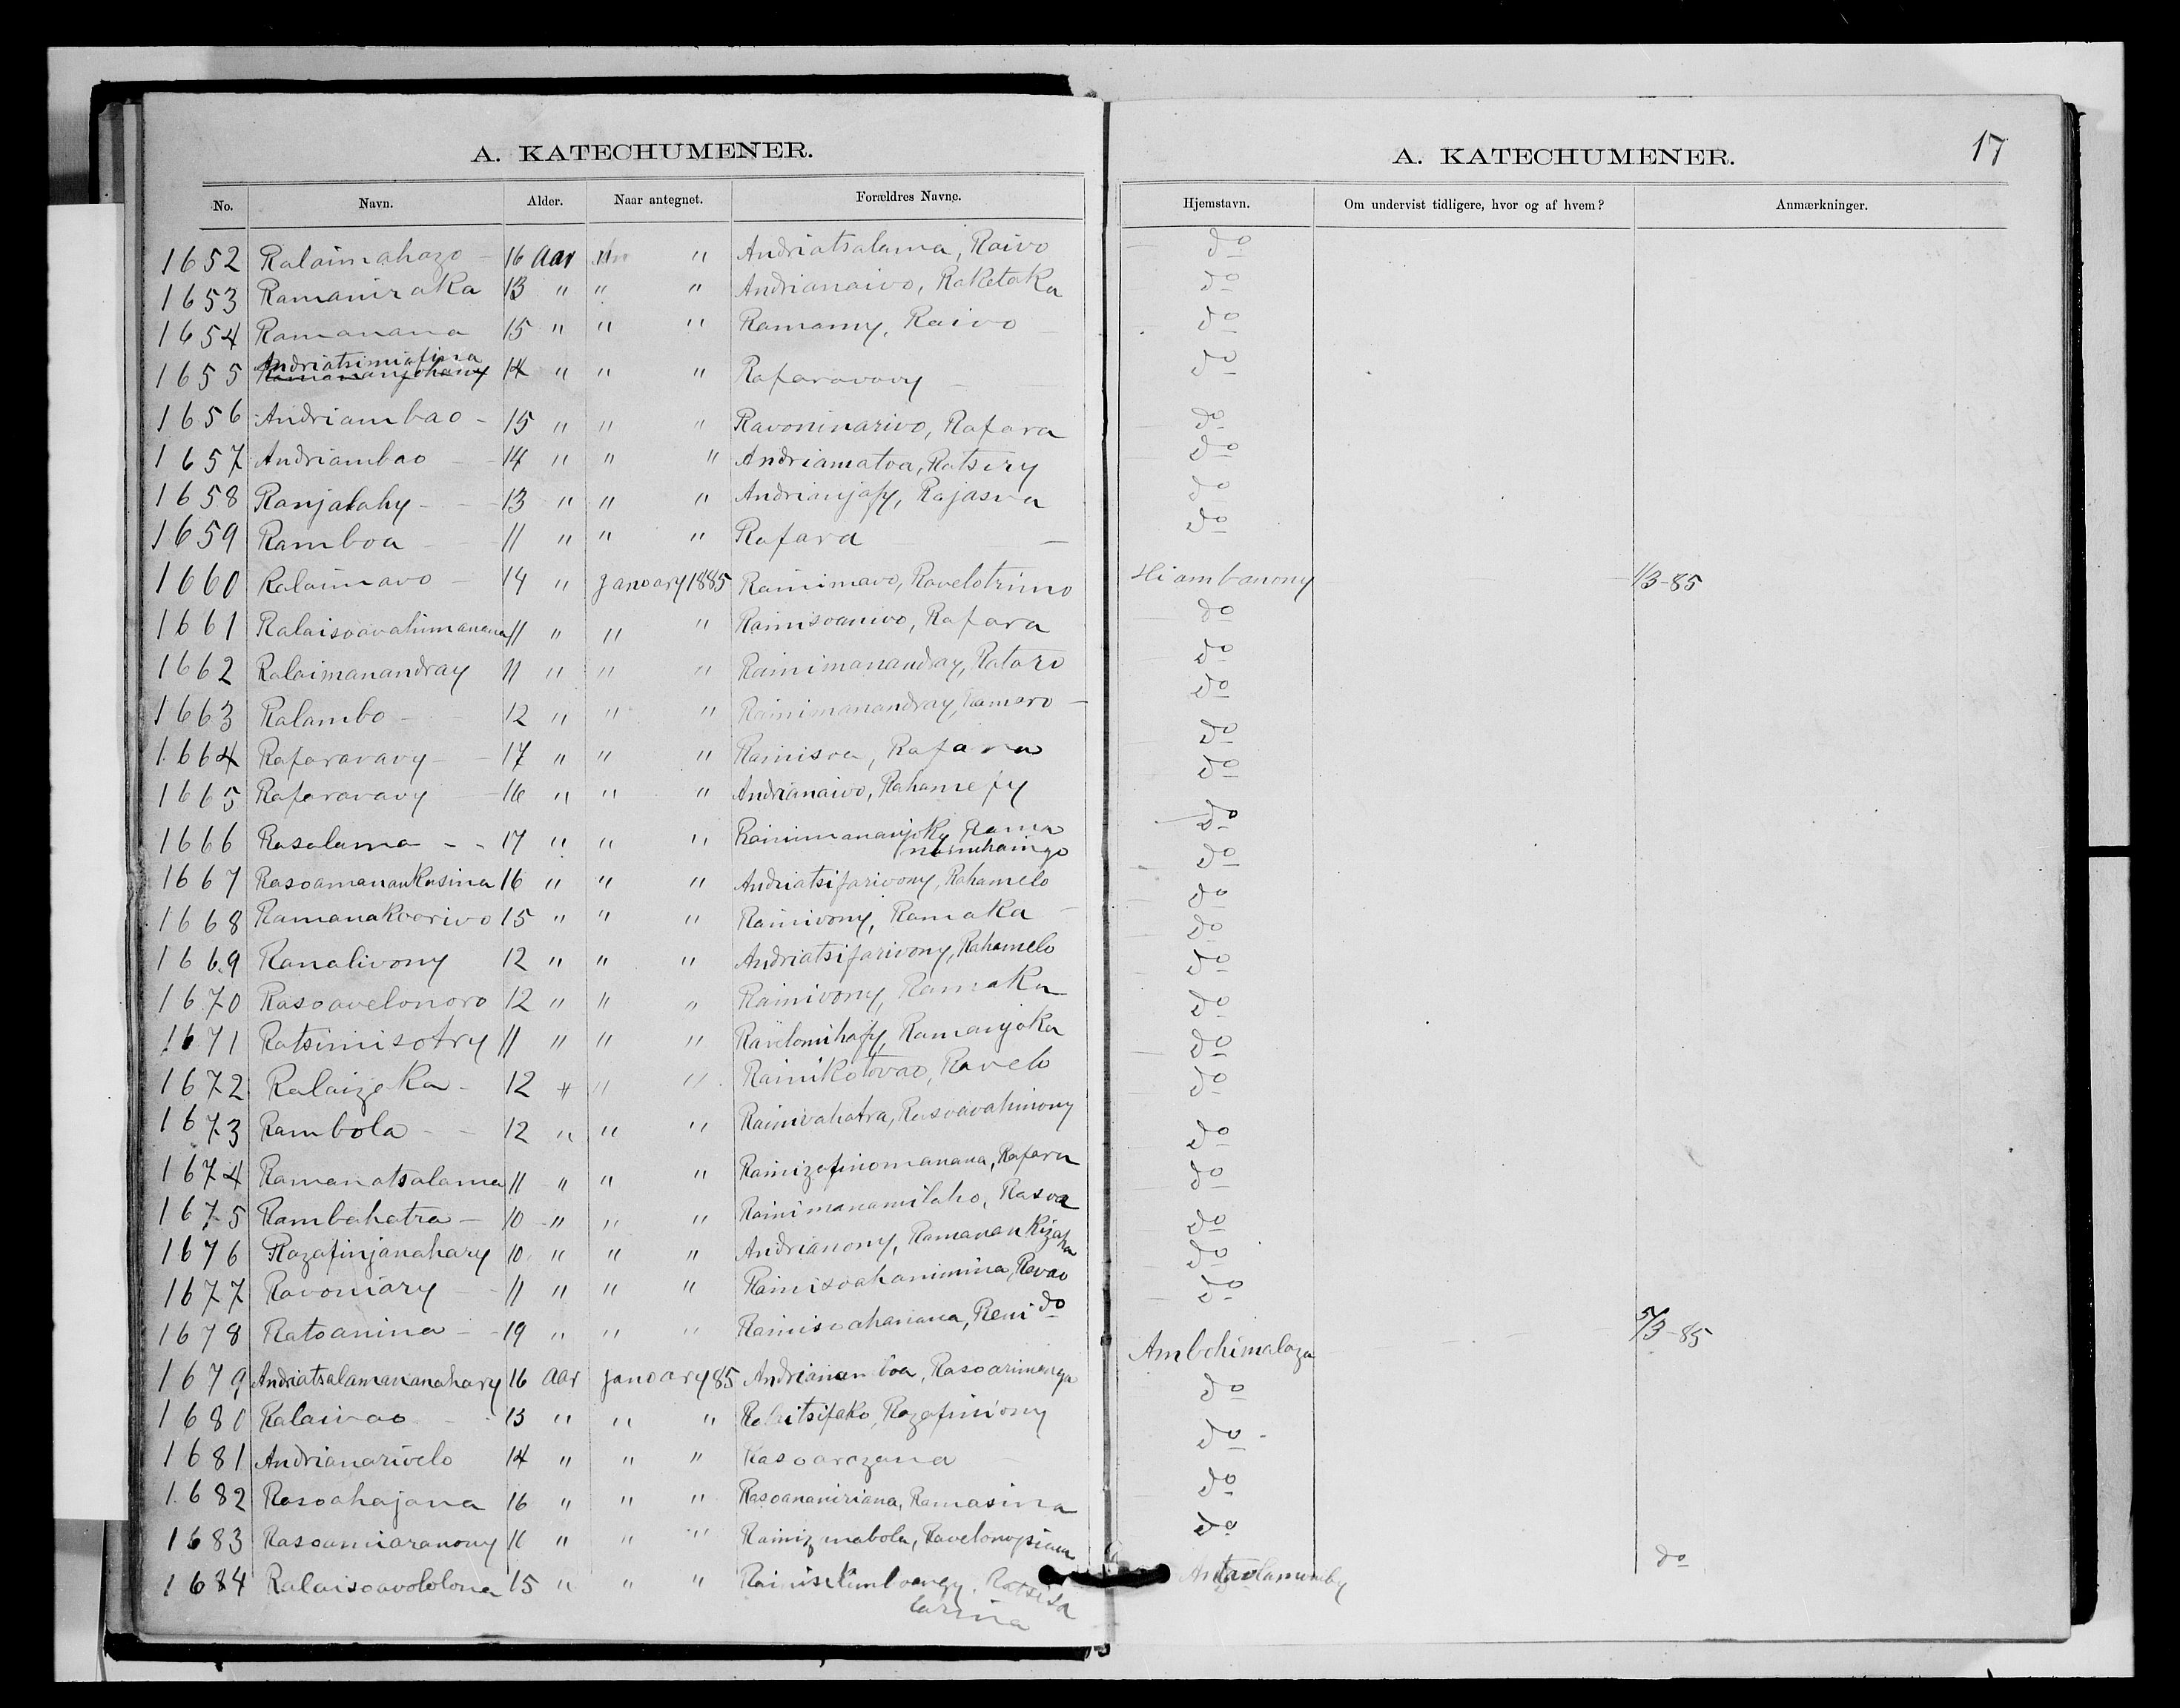 A. KATECHUMENER.
A. KATECHUMENER. 17
No. Navn. Alder. Naar antegnet. Forældres Navne. Hjemstavn. Om undervist tidligere, hvor og af hvem? Anmærkninger.
1652 Ralaimahazo 16 Aar " " Andriatsalama, Raivo do
1653 Ramaniraka 13 " " " Andrianaivo, Raketaka do
1654 Ramanana 15 " " " Ramamy, Raivo do
1655 Andriatsimiafina 14 " " " Rafaravavy do
1656 Andriambao 15 " " " Ravoninarivo, Rafara do
1657 Andriambao 14 " " " Andriamatoa, Ratsiry do
1658 Ranjalahy 13 " " " Andrianjafy, Rajasoa do
1659 Ramboa 11 " " " Rafara do
1660 Ralaimavo 14 " January 1885 Rainimavo, Ravelotrimo Hiambanony 1/3-85
1661 Ralaisoavahimanana 11 " " " Rainisoanivo, Rafara do
1662 Ralaimanandray 11 " " " Rainimanandray, Rataro do
1663 Ralambo 12 " " " Rainimanandray, Ramoro do
1664 Rafaravavy 17 " " " Rainisoa, Rafara do
1665 Rafaravavy 16 " " " Andrianaivo, Rahamefy do
1666 Rasalama 17 " " " Rainimananjoky, Rama do
1667 Rasoamanankasina 16 " " " Andriatsifarivony, Rahamelo do
1668 Ramanakoarivo 15 " " " Rainivony, Ramaka do
1669 Ranalivony 12 " " " Andriatsifarivony, Rahamelo do
1670 Rasoavelonoro 12 " " " Rainivony, Ramaka do
1671 Ratsimisotry 11 " " " Ravelomihafy, Ramanjaka do
1672 Ralaizeka 12 " " " Rainikotovao, Ravelo do
1673 Rambola 12 " " " Rainivahatra, Rasoavahinony do
1674 Ramanatsalama 11 " " " Rainizafinomanana, Rafara do
1675 Rambahatra 10 " " " Rainimanamilaho, Rasoa do
1676 Razafinjanahary 10 " " " Andrianony, Ramanankizafy do
1677 Ravoniary 11 " " " Rainisoahanimina, Ravao do
1678 Ratoanina 19 " " " Rainisoahaniana, Reni do 5/3-85
1679 Andriatsalamananahary 16 Aar January 85 Andrianamboa, Rasoarimanga Ambohimalaza
1680 Ralaivao 13 " " " Ralaitsifako, Razafiniony do
1681 Andrianarivelo 14 " " " Rasoarazana do
1682 Rasoahajana 16 " " " Rasoananiriana, Ramasina do
1683 Rasoamiaranony 11 " " " do
1684 Ralaisoavololona 15 " " " do